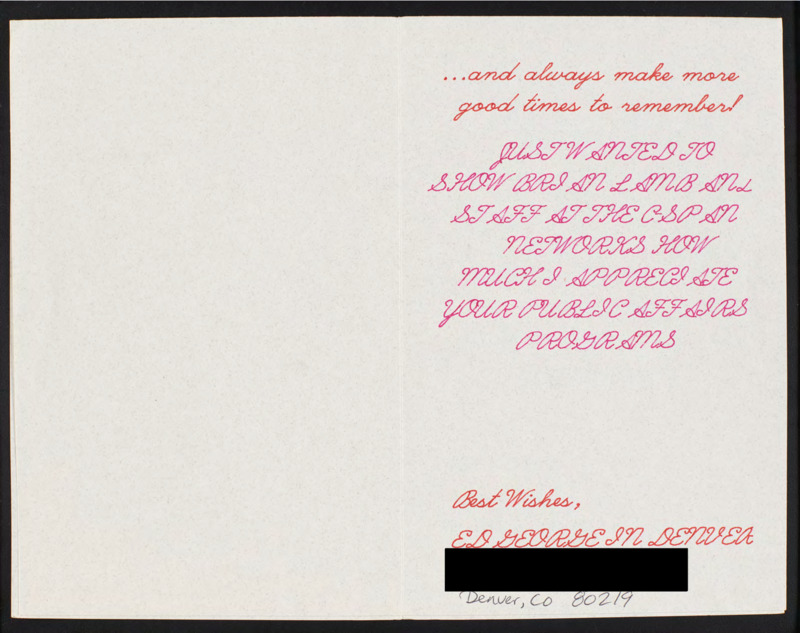 ...and always make more
good times to remember!
JUST WANTED TO
SHOW BRIAN LAMB AND
STAFF AT THE C-SPAN
NETWORKS HOW
MUCH I APPRECIATE
YOUR PUBLIC AFFAIRS
PROGRAMS
Best Wishes,
ED GEORGE IN DENVER
Denver, CO 80219